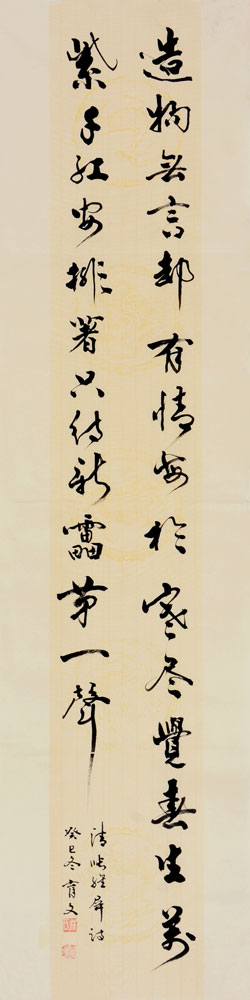 造物無言却有情每於寒尽覺春生萬
紫千紅安排著只待新靁第一聲
清張維屏詩
癸巳冬育文